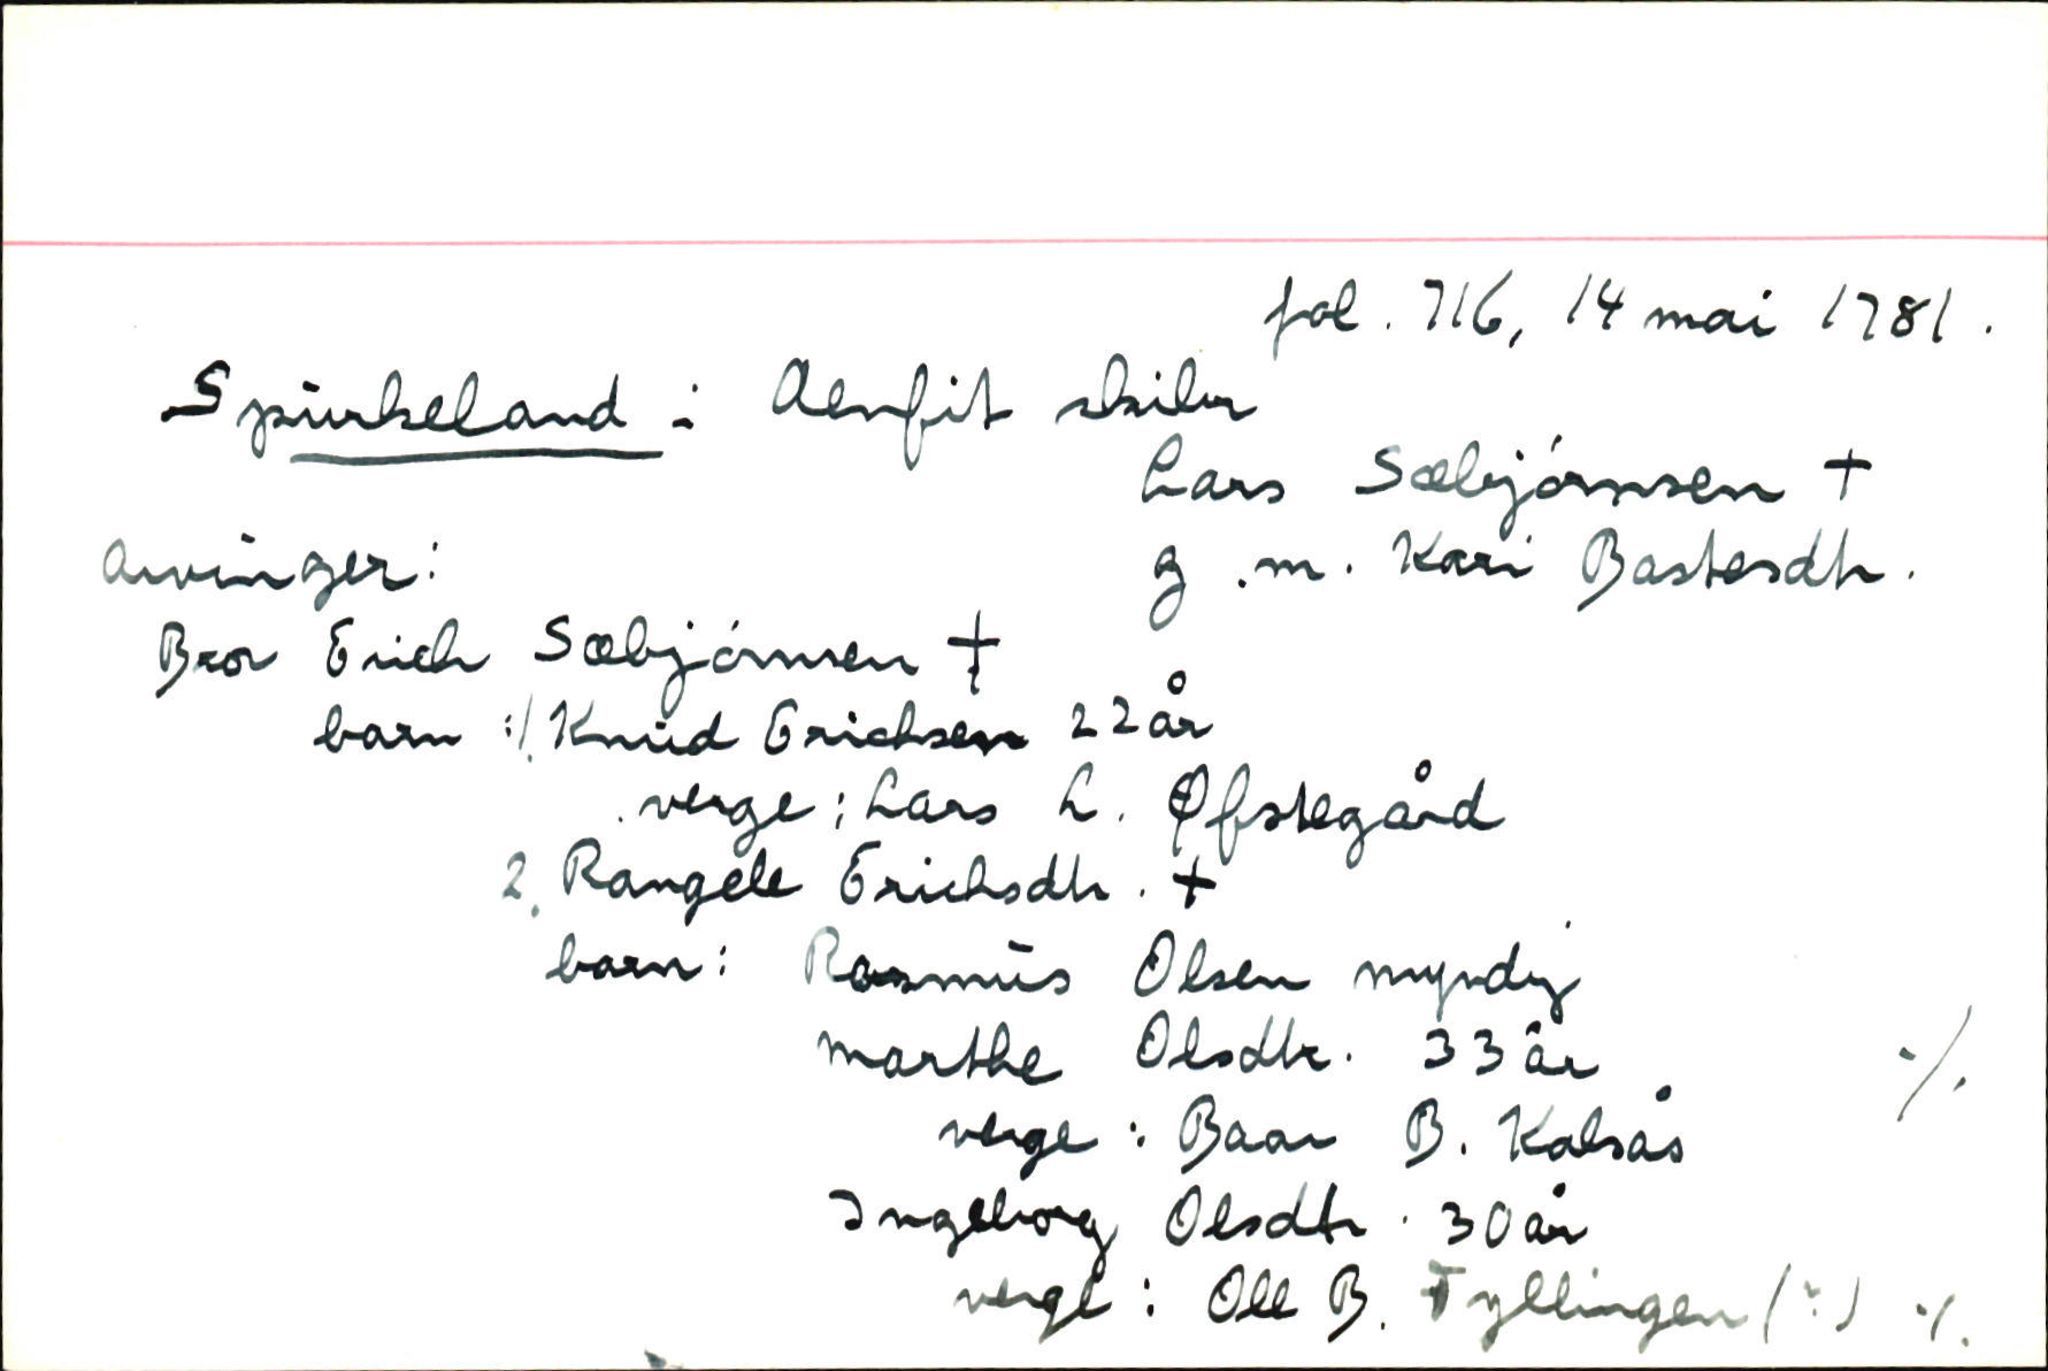 fol. 716, 14 mai 1781.
Spurkeland : Alenfit skiller
Lars Sæbjórnsen †
arvinger:
g.m. Kari Bastesdtr.
Bror Erich Sæbjórnsen †
barn :1. Knud Erichsen 22 år
verge : Lars L. Øfstegård
2. Rangele Erichsdtr. †
barn: Rasmus Olsen myndig
Marthe Olsdtr. 33 år
verge : Baar B. Kalsås
Ingeborg Olsdtr. 30 år
verge : Ole B. Fyllingen (?)
./.
./.